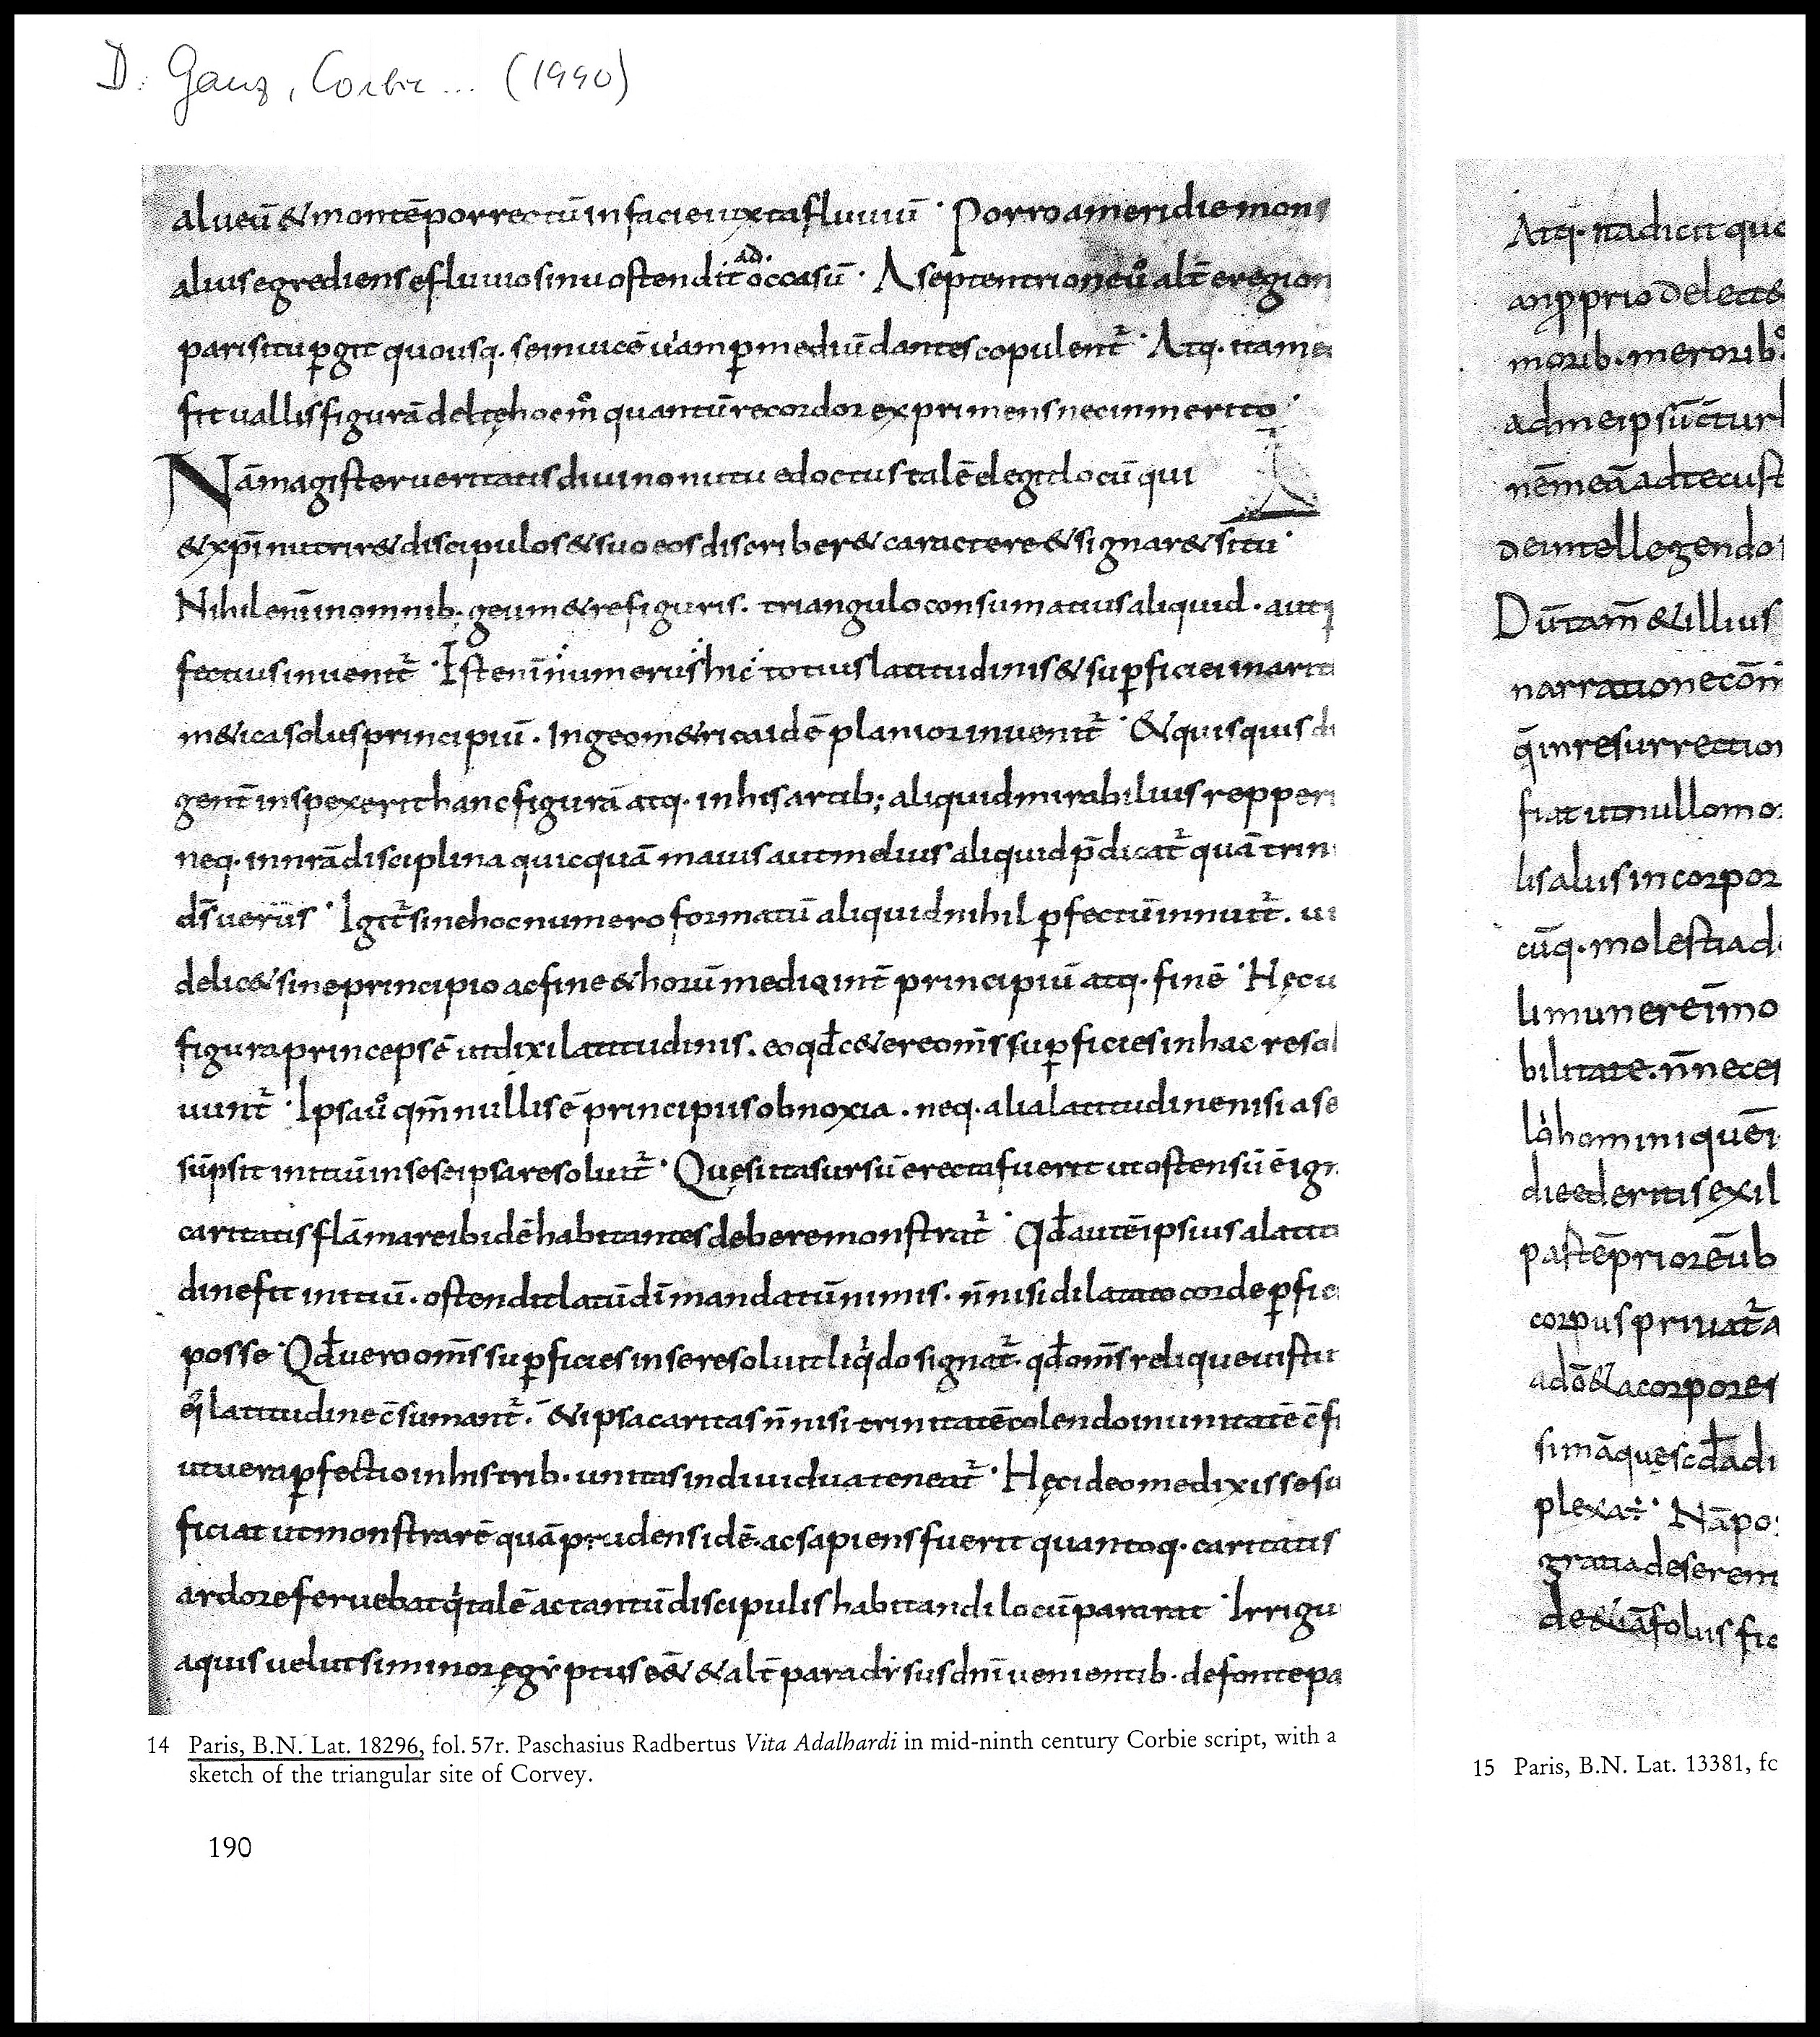 D. Ganz, Corbie ... (1990)
alueū & montē porrectū in facie iuxta fluuiū · Porro a meridie mons
alius egrediens e fluuio sinu ostendit ad occasū · A septentrione ů alt̄ e region
pari situ ꝑgit quousq· se inuicē uiam ꝑ mediū dantes copulent᷑ · Atq· ita me
fit uallis figurā deltę hoc m̊ quantū recordor exprimens nec inmerito ·
Nā magister ueritatis diuino nutu edoctus talē elegit locū qui
& xp̄i nutrir& discipulos & suo eos discriber& caractere & signar& situ ·
Nihil enī in omnib· geum&re figuris · triangulo consumatius aliquid · aut ꝑ
fectius inuenit᷑ · Iste nī numerus hic totius latitudinis & suꝑficiei in arit
m&ica solus principiū · In geom&rica idē planior inuenit᷑ · & quisquis di
gent̄ inspexerit hanc figurā atq· in his artib; aliquid mirabilius repperi
neq· in nr̄a disciplina quicquā maius aut melius aliquid p̄dicat᷑ quā trin
ds̄ uerus · Igit᷑ sine hoc numero formatū aliquid nihil ꝑfectū innuit᷑ · ui
delic& sine principio ac fine & horū medio int̄ principiū atq· finē · Hęc u
figura princeps ē ut dixi latitudinis · eo qđ c&ere om̄s suꝑficies in hac resol
uunt᷑ · Ipsa ů qm̄ nullis ē principiis obnoxia · neq· alia latitudine nisi a se
sūpsit initiū in se se ipsa resoluit᷑ · Quę si ita sursū erecta fuerit ut ostensū ē ign
caritatis flāmare ibidē habitantes debere monstrat᷑ · Qđ autē ipsius a latitu
dine fit initiū · ostendit latū dī mandatū nimis · n̄ nisi dilatato corde ꝑfici
posse · Qđ uero om̄s suꝑficies in se resoluit liq̇do signat᷑ · qđ om̄s reliquę uirtut
ei᷒ latitudine c̄sumant᷑ · & ipsa caritas n̄ nisi trinitatē colendo in unitatē c̄fi
ut uera ꝑfectio in his trib· unitas indiuidua teneat᷑ · Hęc ideo me dixisse su
ficiat ut monstrarē quā prudens idē ac sapiens fuerit quantoq· caritatis
ardore feruebat q̇ talē ac tantū discipulis habitandi locū pararat · Irrigu
aquis uelut si minor ęgẏptus eē& & alt̄ paradẏsus dn̄i uenientib· de fonte pa
14 Paris, B.N. Lat. 18296, fol. 57r. Paschasius Radbertus Vita Adalhardi in mid-ninth century Corbie script, with a
sketch of the triangular site of Corvey.
190
Atq· ita dicit quo
an ꝓprio delect&
morib· merorib᷒
ad me ipsū c̄turb
nēmeā ad te cust
de intellegendo
Dū tam̄ & illius
narratione cōm
q̄ in resurrection
fiat ut nullo mo
li salus in corpor
cūq· molestia d
li munere īmo
bilitate · n̄ nece
la hominiquē
die ederitis exil
pastē priorē ub
corpus priuat᷑ a
a dō & a corpore
simā quę scđ adi
plexat᷑ · Nā po
gratia deserent
de & uā folus fic
15 Paris, B.N. Lat. 13381, fc